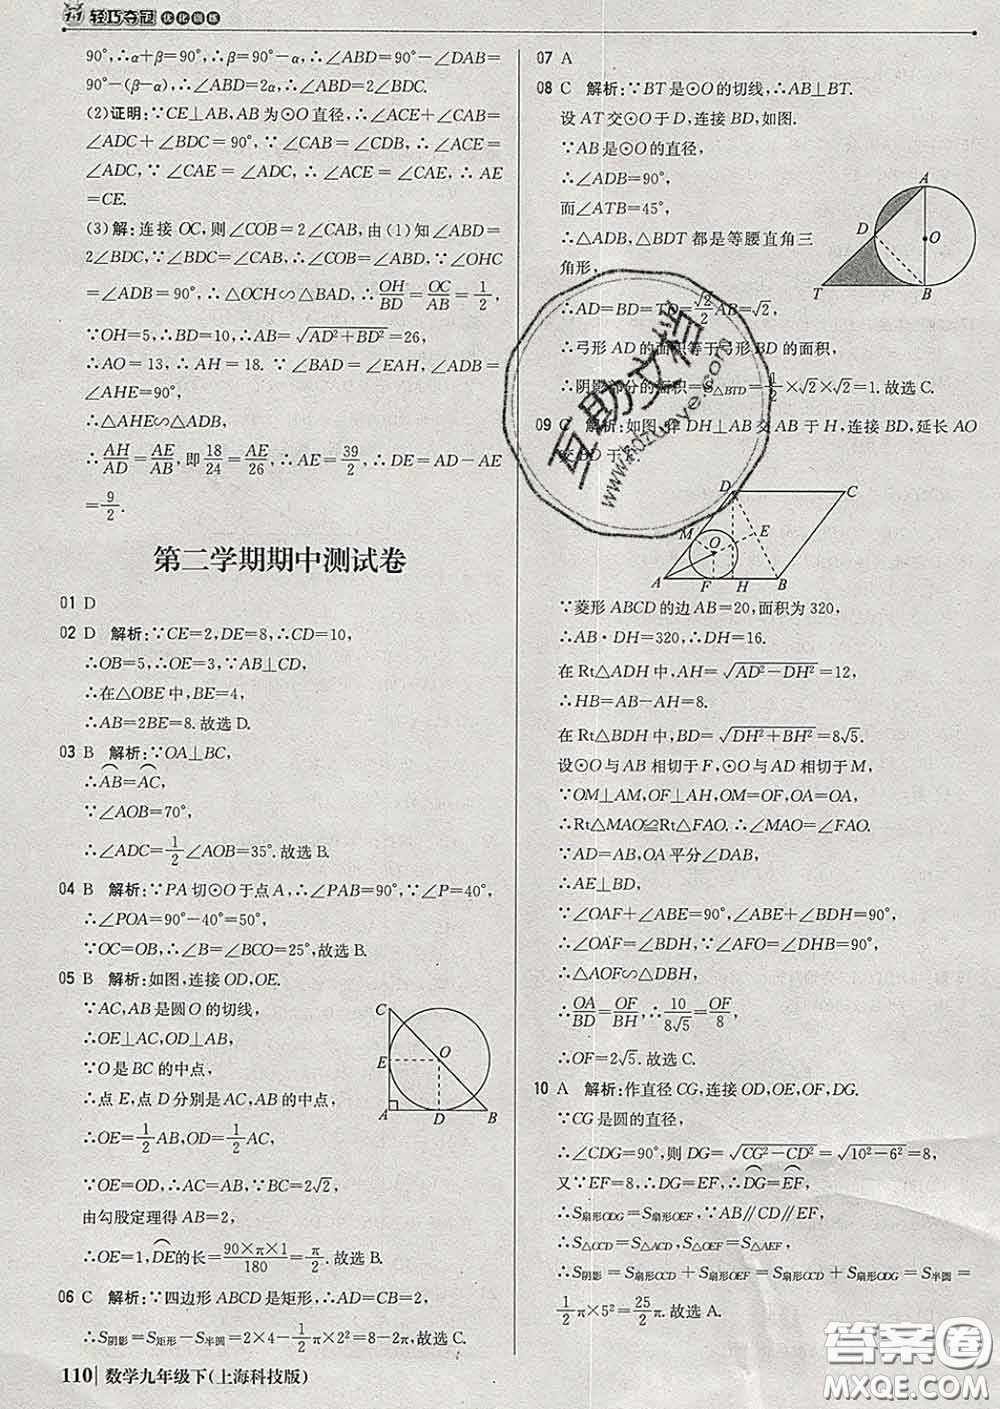 1+1 轻巧夺冠 优化训练
90°,∴α+β=90°,∴β=90°-α,∴∠ABD=90°-∠DAB=
90°-(β-α),∴∠ABD=2α,∴∠ABD=2∠BDC.
(2)证明:∵CE⊥AB,AB为⊙O直径,∴∠ACE+∠CAB=
∠ADC+∠BDC=90°,∵∠CAB=∠CDB,∴∠ACE=
∠ADC,∵∠CAE=∠ADC,∴∠ACE=∠CAE,∴AE
=CE.
(3)解:连接OC,则∠COB=2∠CAB,由(1)知∠ABD=
2∠BDC,∵∠BDC=∠CAB,∴∠COB=∠ABD,∵∠OHC
=∠ADB=90°,∴△OCH∽△ABD,∴OH/BD=OC/AB=1/2,
∵OH=5,∴BD=10,∴AB=√(AD²+BD²)=26,
∴AO=13,∴AH=18.∵∠BAD=∠EAH,∠ADB=
∠AHE=90°,
∴△AHE∽△ADB,
∴AH/AD=AE/AB,即18/24=AE/26,∴AE=39/2,∴DE=AD-AE
=9/2.
第二学期期中测试卷
01 D
02 D 解析:∵CE=2,DE=8,∴CD=10,
∴OB=5,∴OE=3,∵AB⊥CD,
∴在△OBE中,BE=4,
∴AB=2BE=8.故选D.
03 B 解析:∵OA⊥BC,
∴AB⌒=AC⌒,
∵∠AOB=70°,
∴∠ADC=1/2∠AOB=35°.故选B.
04 B 解析:∵PA切⊙O于点A,∴∠PAB=90°,∵∠P=40°,
∴∠POA=90°-40°=50°,
∵OC=OB,∴∠B=∠BCO=25°,故选B.
05 B 解析:如图,连接OD,OE.
∵AC,AB是圆O的切线,
∴OE⊥AC,OD⊥AB,
∵O是BC的中点,
∴点E,点D分别是AC,AB的中点,
∴OE=1/2AB,OD=1/2AC,
∵OE=OD,∴AC=AB,∵BC=2√2,
由勾股定理得AB=2,
∴OE=1,DE⌒的长=90×π×1/180=π/2.故选B.
C
E
O
A
D
B
06 C 解析:∵四边形ABCD是矩形,∴AD=CB=2,
∴S阴影=S矩形-S半圆=2×4-1/2π×2²=8-2π.故选C.
110 数学九年级下(上海科技版)
07 A
08 C 解析:∵BT是⊙O的切线,∴AB⊥BT.
设AT交⊙O于D,连接BD,如图.
∵AB是⊙O的直径,
∴∠ADB=90°,
而∠ATB=45°,
∴△ADB,△BDT都是等腰直角三
角形,
∴AD=BD=TD=√2/2AB=√2,
∴弓形AD的面积等于弓形BD的面积,
∴阴影部分的面积=S△BTD=1/2×√2×√2=1.故选C.
A
D
O
T
B
09 C 解析:如图,作DH⊥AB交AB于H,连接BD,延长AO
交BD于E.
D
C
M
O
E
A
F
H
B
∵菱形ABCD的边AB=20,面积为320,
∴AB·DH=320,∴DH=16.
在Rt△ADH中,AH=√(AD²-DH²)=12,
∴HB=AB-AH=8.
在Rt△BDH中,BD=√(DH²+BH²)=8√5.
设⊙O与AB相切于F,⊙O与AD相切于M,
∵OM⊥AM,OF⊥AH,OM=OF,OA=OA,
∴Rt△MAO≌Rt△FAO.∴∠MAO=∠FAO.
∵AD=AB,OA平分∠DAB,
∴AE⊥BD,
∵∠OAF+∠ABE=90°,∠ABE+∠BDH=90°,
∴∠OAF=∠BDH,∵∠AFO=∠DHB=90°,
∴△AOF∽△DBH,
∴OA/BD=OF/BH,∴10/8√5=OF/8,
∴OF=2√5.故选C.
10 A 解析:作直径CG,连接OD,OE,OF,DG.
∵CG是圆的直径,
∴∠CDG=90°,则DG=√(CG²-CD²)=√(10²-6²)=8,
又∵EF=8,∴DG=EF,∴DG⌒=EF⌒,
∴S扇形ODG=S扇形OEF,∵AB∥CD∥EF,
∴S△OCD=S△ACD,S△OEF=S△AEF,
∴S阴影=S扇形OCD+S扇形OEF=S扇形OCD+S扇形ODG=S半圆=
1/2π×5²=25/2π.故选A.
互助文档
www.hdzuoye.com
答案圈
MXQE.COM